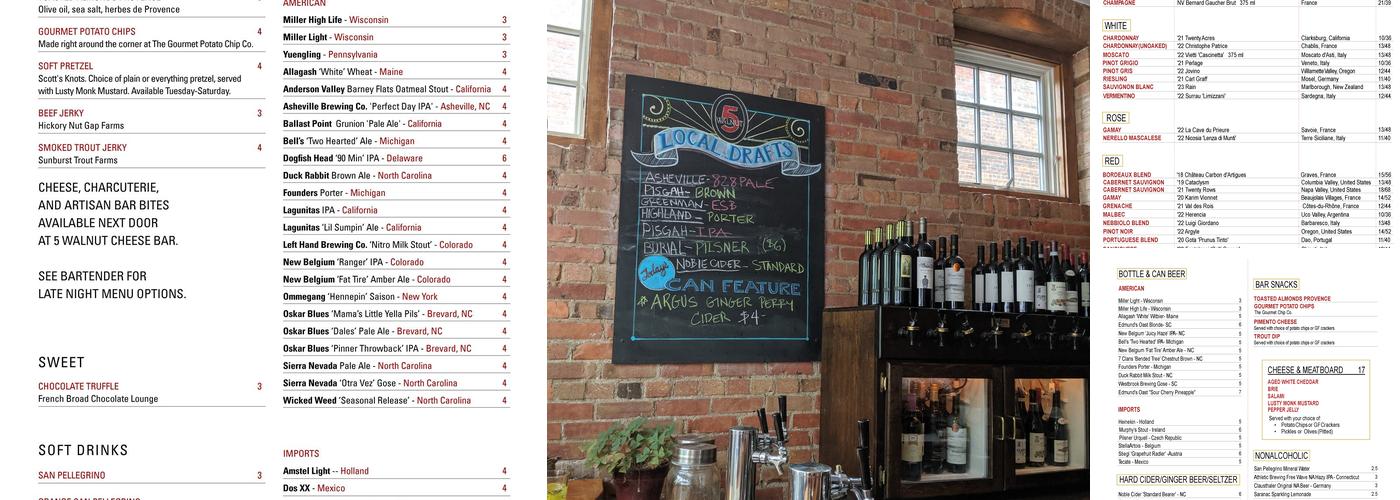 Olive oil, sea salt, herbes de Provence
GOURMET POTATO CHIPS 4
Made right around the corner at The Gourmet Potato Chip Co.
SOFT PRETZEL 4
Scott's Knots. Choice of plain or everything pretzel, served
with Lusty Monk Mustard. Available Tuesday-Saturday.
BEEF JERKY 3
Hickory Nut Gap Farms
SMOKED TROUT JERKY 4
Sunburst Trout Farms
CHEESE, CHARCUTERIE,
AND ARTISAN BAR BITES
AVAILABLE NEXT DOOR
AT 5 WALNUT CHEESE BAR.
SEE BARTENDER FOR
LATE NIGHT MENU OPTIONS.
SWEET
CHOCOLATE TRUFFLE 3
French Broad Chocolate Lounge
SOFT DRINKS
SAN PELLEGRINO 3
AMERICAN
Miller High Life - Wisconsin 3
Miller Light - Wisconsin 3
Yuengling - Pennsylvania 3
Allagash 'White' Wheat - Maine 4
Anderson Valley Barney Flats Oatmeal Stout - California 4
Asheville Brewing Co. 'Perfect Day IPA' - Asheville, NC 4
Ballast Point Grunion 'Pale Ale' - California 4
Bell's 'Two Hearted' Ale - Michigan 4
Dogfish Head '90 Min' IPA - Delaware 6
Duck Rabbit Brown Ale - North Carolina 4
Founders Porter - Michigan 4
Lagunitas IPA - California 4
Lagunitas 'Lil Sumpin' Ale - California 4
Left Hand Brewing Co. 'Nitro Milk Stout' - Colorado 4
New Belgium 'Ranger' IPA - Colorado 4
New Belgium 'Fat Tire' Amber Ale - Colorado 4
Ommegang 'Hennepin' Saison - New York 4
Oskar Blues 'Mama's Little Yella Pils' - Brevard, NC 4
Oskar Blues 'Dales' Pale Ale - Brevard, NC 4
Oskar Blues 'Pinner Throwback' IPA - Brevard, NC 4
Sierra Nevada Pale Ale - North Carolina 4
Sierra Nevada 'Otra Vez' Gose - North Carolina 4
Wicked Weed 'Seasonal Release' - North Carolina 4
IMPORTS
Amstel Light -- Holland 4
Dos XX - Mexico 4
5
WALNUT
LOCAL DRAFTS
ASHEVILLE - 828 PALE
PISGAH - BROWN
GREENMAN - ESB
HIGHLAND - PORTER
PISGAH - IPA
BURIAL - PILSNER ($6)
NOBLE CIDER - STANDARD
Today's
CAN FEATURE
* ARGUS GINGER PERRY
CIDER $4-
CHAMPAGNE NV Bernard Gaucher Brut 375 ml France 21/39
WHITE
CHARDONNAY '21 Twenty Acres Clarksburg, California 10/36
CHARDONNAY(UNOAKED) '22 Christophe Patrice Chablis, France 13/48
MOSCATO '22 Vietti 'Cascinetta' 375 ml Moscato d'Asti, Italy 13/48
PINOT GRIGIO '21 Perlage Veneto, Italy 10/36
PINOT GRIS '22 Jovino Willamette Valley, Oregon 12/44
RIESLING '21 Carl Graff Mosel, Germany 11/40
SAUVIGNON BLANC '23 Rain Marlborough, New Zealand 13/48
VERMENTINO '22 Surrau 'Limizzani' Sardegna, Italy 12/44
ROSE
GAMAY '22 La Cave du Prieure Savoie, France 13/48
NERELLO MASCALESE '22 Nicosia 'Lenza di Munti' Terre Siciliane, Italy 11/40
RED
BORDEAUX BLEND '18 Château Carbon d'Artigues Graves, France 15/56
CABERNET SAUVIGNON '19 Cataclysm Columbia Valley, United States 13/48
CABERNET SAUVIGNON '21 Twenty Rows Napa Valley, United States 18/68
GAMAY '20 Karim Vionnet Beaujolais Villages, France 14/52
GRENACHE '21 Val des Rois Côtes-du-Rhône, France 12/44
MALBEC '22 Herencia Uco Valley, Argentina 10/36
NEBBIOLO BLEND '20 Luigi Giordano Barbaresco, Italy 13/48
PINOT NOIR '22 Argyle Oregon, United States 14/52
PORTUGUESE BLEND '20 Gota 'Prunus Tinto' Dao, Portugal 11/40
BOTTLE & CAN BEER
AMERICAN
Miller Light - Wisconsin 3
Miller High Life - Wisconsin 3
Allagash 'White' Witbier - Maine 5
Edmund's Oast Blonde - SC 6
New Belgium 'Juicy Haze' IPA - NC 5
Bell's 'Two Hearted' IPA - Michigan 5
New Belgium 'Fat Tire' Amber Ale - NC 5
7 Clans 'Bended Tree' Chestnut Brown - NC 5
Founders Porter - Michigan 5
Duck Rabbit Milk Stout - NC 5
Westbrook Brewing Gose - SC 5
Edmund's Oast "Sour Cherry Pineapple" 7
IMPORTS
Heineken - Holland 5
Murphy's Stout - Ireland 6
Pilsner Urquell - Czech Republic 5
Stella Artois - Belgium 5
Stiegl 'Grapefruit Radler' - Austria 6
Tecate - Mexico 5
HARD CIDER/GINGER BEER/SELTZER
Noble Cider 'Standard Bearer' - NC 6
BAR SNACKS
TOASTED ALMONDS PROVENCE
GOURMET POTATO CHIPS
The Gourmet Chip Co.
PIMENTO CHEESE
Served with choice of potato chips or GF crackers
TROUT DIP
Served with choice of potato chips or GF crackers
CHEESE & MEATBOARD 17
AGED WHITE CHEDDAR
BRIE
SALAMI
LUSTY MONK MUSTARD
PEPPER JELLY
Served with your choice of:
• Potato Chips or GF Crackers
• Pickles or Olives (Pitted)
NONALCOHOLIC
San Pellegrino Mineral Water 2.5
Athletic Brewing Free Wave NA Hazy IPA - Connecticut 3
Clausthaler Original NA Beer - Germany 3
Saranac Sparkling Lemonade 2.5